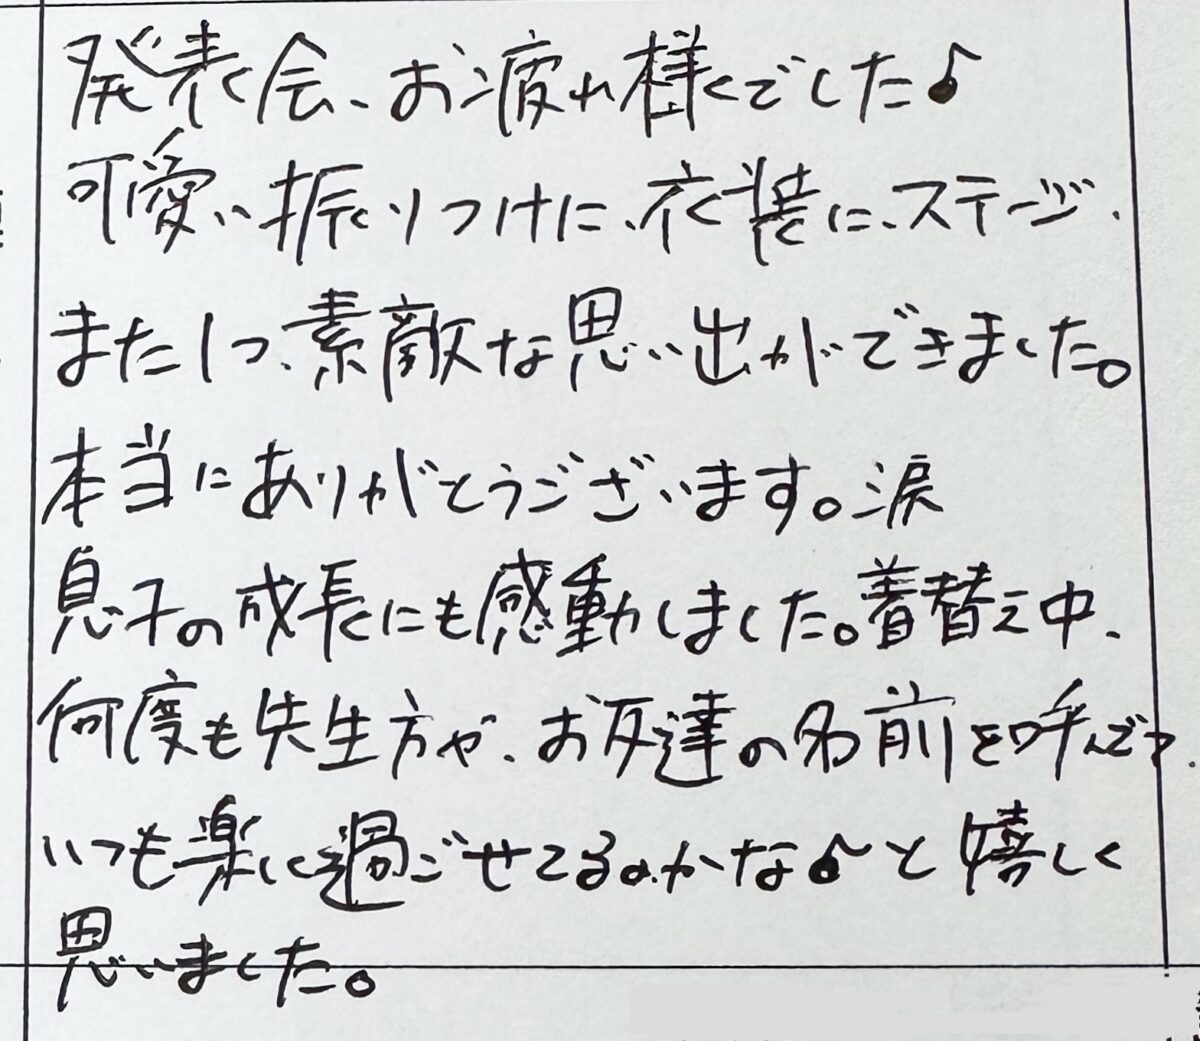 発表会、お疲れ様でした♪
可愛い振りつけに、衣装に、ステージ、
また1つ、素敵な思い出ができました。
本当にありがとうございます。涙
息子の成長にも感動しました。着替え中、
何度も先生方や、お友達の名前を呼んでて、
いつも楽しく過ごせてるのかな♪と嬉しく
思いました。